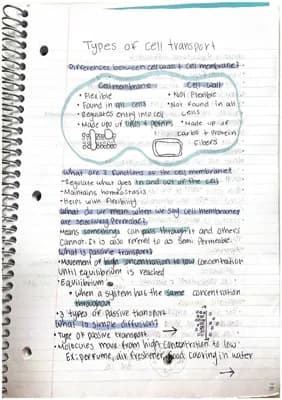 Types of cell transport
Differences between cell wall & cell membrane?
Cell membrane
• Flexible
• Found in all cells
• Regulates entry into cell
• Made up of lipids & proteins
Cell wall
• Not Flexible
• Not found in all cells
• Made up of carbs + Protein Fibers
What are 3 functions of the cell membrane?
•Regulate what goes in and out of the cell
•Maintains homeostasis
•Helps with flexibility
What do we mean when we say cell membranes
are selectively Permeable?
Means somethings can pass through it and others
cannot. It is also referred to as Semi Permeable.
What is passive transport?
•Movement of high concentration to low concentration
until equilibrium is reached
•Equilibrium
• When a system has the same concentration
throughout
•3 types of passive transport
What is simple diffusion?
•Type of passive transport
•Molecules move from high concentration to low
Ex: perfume, air freshener, food coloring in water